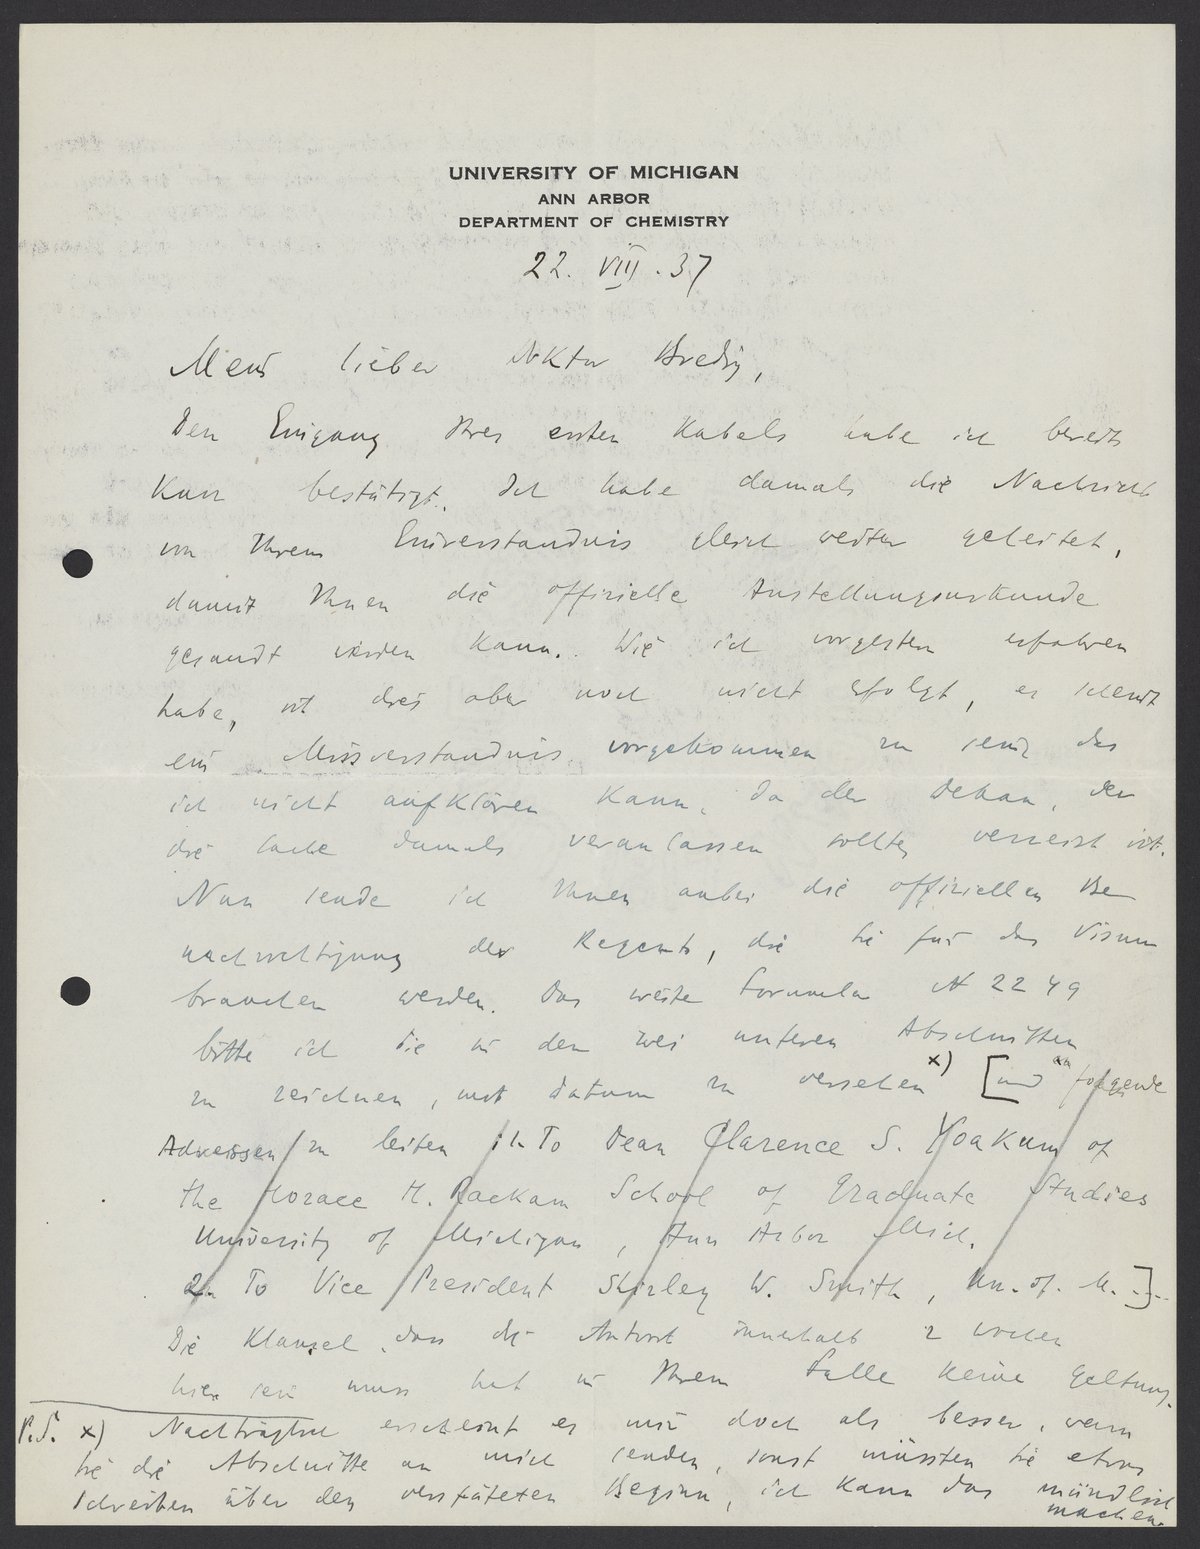 UNIVERSITY OF MICHIGAN
ANN ARBOR
DEPARTMENT OF CHEMISTRY
22. VIII. 37
Mein lieber Doktor Bredig,
Den Eingang Ihres ersten Kabels habe ich bereits
kurz bestätigt. Ich habe damals die Nachricht
von Ihrem Einverständnis gleich weiter geleitet,
damit Ihnen die offizielle Anstellungsurkunde
gesandt werden kann. Wie ich vorgestern erfahren
habe, ist dies aber noch nicht erfolgt, es scheint
ein Missverständnis vorgekommen zu sein, das
ich nicht aufklären kann, da der Dekan, der
die Sache damals veranlassen sollte, verreist ist.
Nun sende ich Ihnen anbei die offiziellen Be
nachrichtigung der Regents, die Sie für das Visum
brauchen werden. Das weite Formular N 2249
bitte ich Sie in den zwei unteren Abschnitten
zu zeichnen, mit Datum zu versehen x) [und an folgende
Adressen zu leiten 1. To Dean Clarence S. Yoakum of
the Horace H. Rackam School of Graduate Studies
University of Michigan, Ann Arbor Mich.
2. To Vice President Shirley W. Smith, Un. of. M.]
Die Klausel, dass die Antwort innerhalb 2 Wochen
hier sein muss hat in Ihrem Falle keine Geltung.
P.S. x) Nachträglich erscheint es mir doch als besser, wenn
Sie die Abschnitte an mich senden, sonst müssten Sie etwas
schreiben über den verspäteten Beginn, ich kann das mündlich
machen.